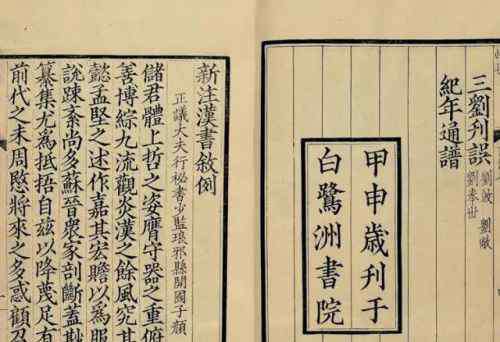 三劉刊誤
劉攽 劉敞
劉奉世
紀年通譜
甲申歲刊于
白鷺洲書院
新注漢書敘例
正議大夫行秘書少監琅邪縣開國子顏
儲君體上哲之姿膺守器之重俯
善博綜九流觀炎漢之餘風究其
懿孟堅之述作嘉其宏贍以為服
說踈紊尚多蘇晉衆家剖斷蓋尠
纂集尤為抵捂自茲以降蔑足有
前代之未周愍將來之多惑顧召